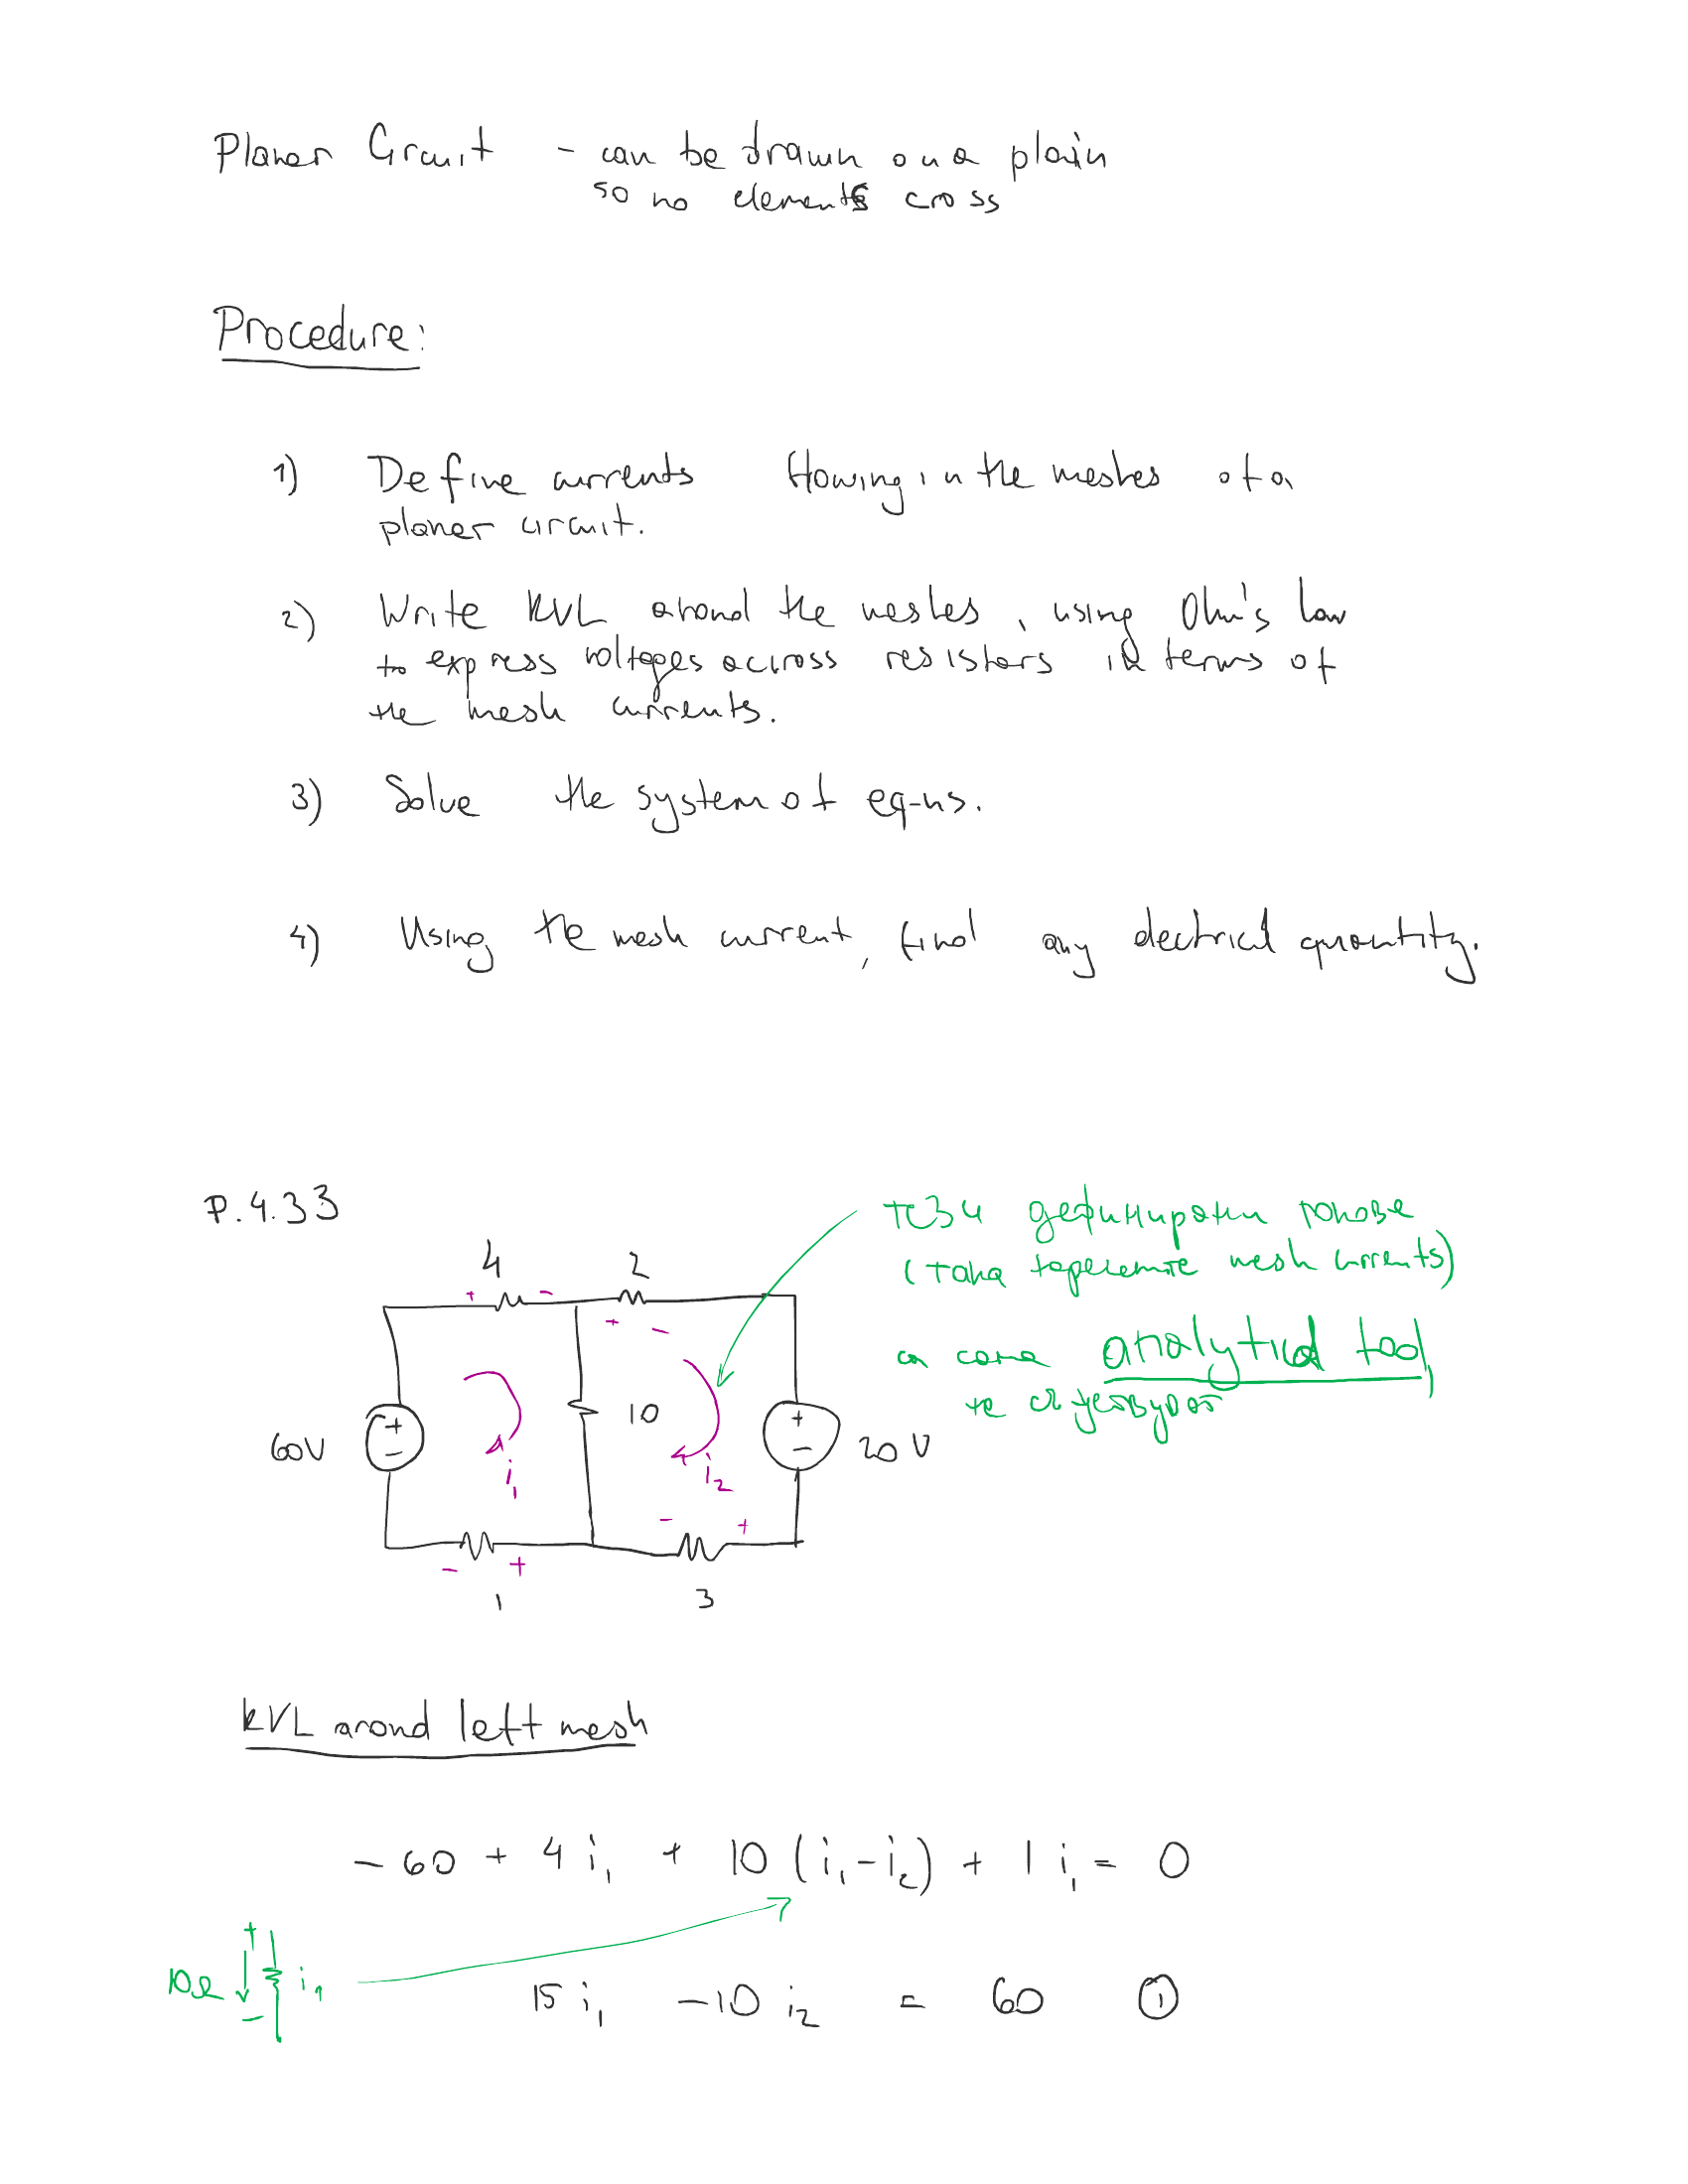 Planer Circuit - can be drawn on a plain
so no elements cross
Procedure:
1) Define currents flowing in the meshes of a
planer circuit.
2) Write KVL arond the meshes, using Ohm's law
to express voltages accross resistors in terms of
the mesh currents.
3) Solve the system of eq-ns.
4) Using the mesh current, find any electrical quantity.
P.4.33
тези дефинирани токове
(така наречените mesh currents)
са само analytical tool,
не съществуват
4 2
+ - + -
60V + - i₁ 10 i₂ + - 20V
- + - +
1 3
KVL arond left mesh
- 60 + 4 i₁ + 10 (i₁-i₂) + 1 i₁ = 0
10Ω + - i₁
15 i₁ -10 i₂ = 60 ①